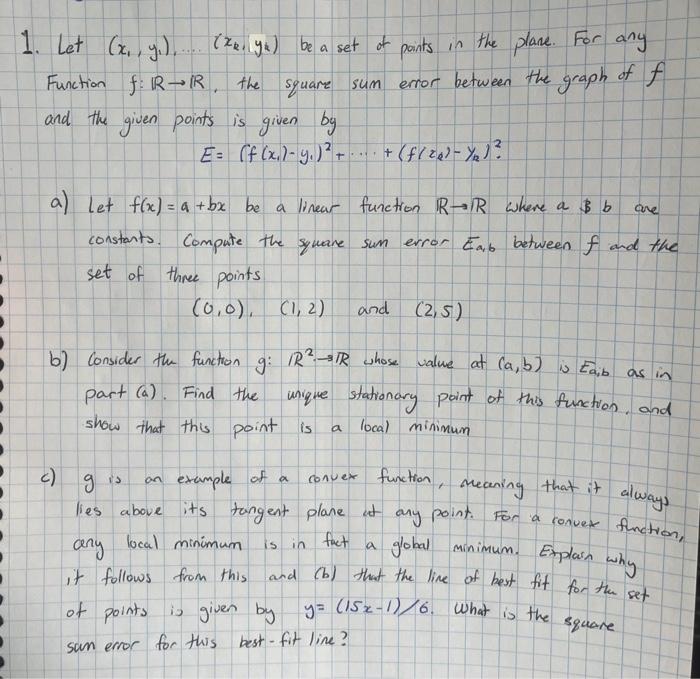 1. Let (x₁, y₁), .... (xₖ, yₖ) be a set of points in the plane. For any
Function f: ℝ→ℝ, the square sum error between the graph of f
and the given points is given by
E = (f(x₁)-y₁)² + .... + (f(xₖ)-yₖ)².
a) Let f(x) = a + bx be a linear function ℝ→ℝ where a & b are
constants. Compute the square sum error Ea,b between f and the
set of three points
(0,0), (1,2) and (2,5)
b) Consider the function g: ℝ²→ℝ whose value at (a,b) is Ea,b as in
part (a). Find the unique stationary point of this function, and
show that this point is a local minimum
c) g is an example of a convex function, meaning that it always
lies above its tangent plane at any point. For a convex function,
any local minimum is in fact a global minimum. Explain why
it follows from this and (b) that the line of best fit for the set
of points is given by y = (15x-1)/6. What is the square
sum error for this best-fit line?